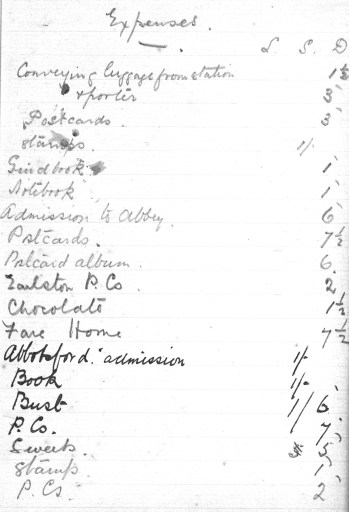 Expenses.
£ S. D
Conveying luggage from station 1½
& porter 3
Postcards. 3
Stamps. 1/
Guidbook 1
Notebook 1
Admission to Abbey. 6
Pstcards. 7½
Pstcard album. 6
Earlston P.Cs. 2
Chocolate 1½
Fare Home 7½
Abbotsford. admission 1/-
Book 1/-
Bust 1/6
P.Cs. 7
Sweets 5
Stamps. 1
P.Cs. 2